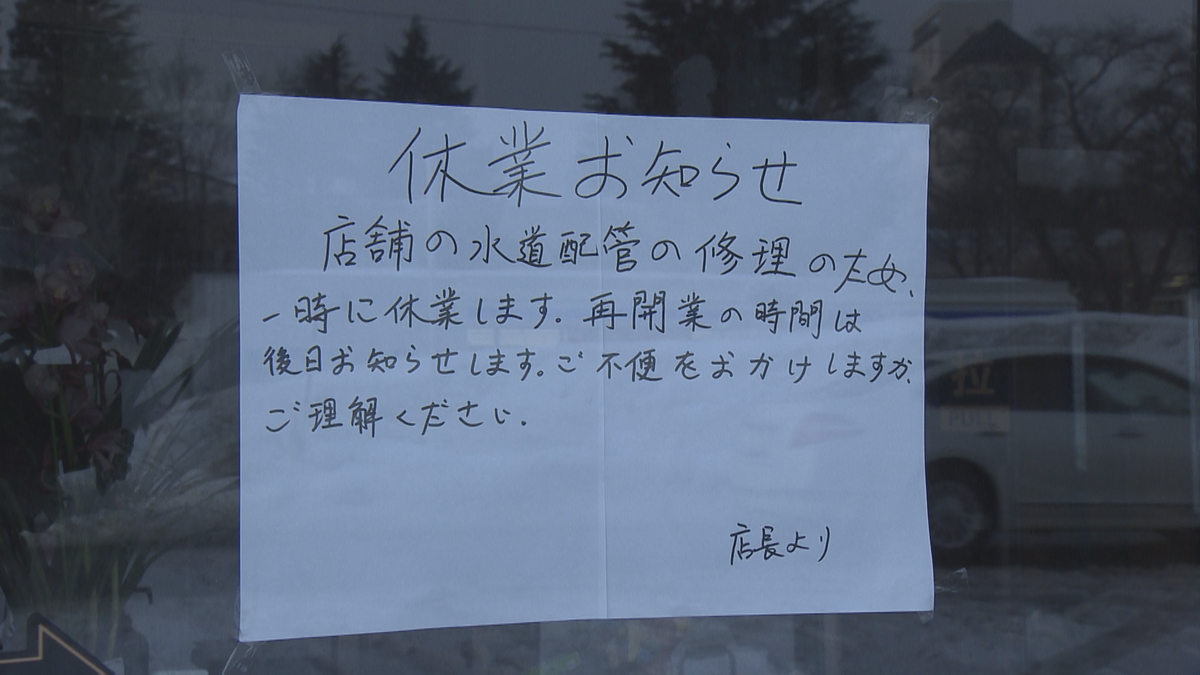 休業お知らせ
店舗の水道配管の修理のため、
一時に休業します。再開業の時間は
後日お知らせします。ご不便をおかけしますが、
ご理解ください。
店長より
拉
PULL